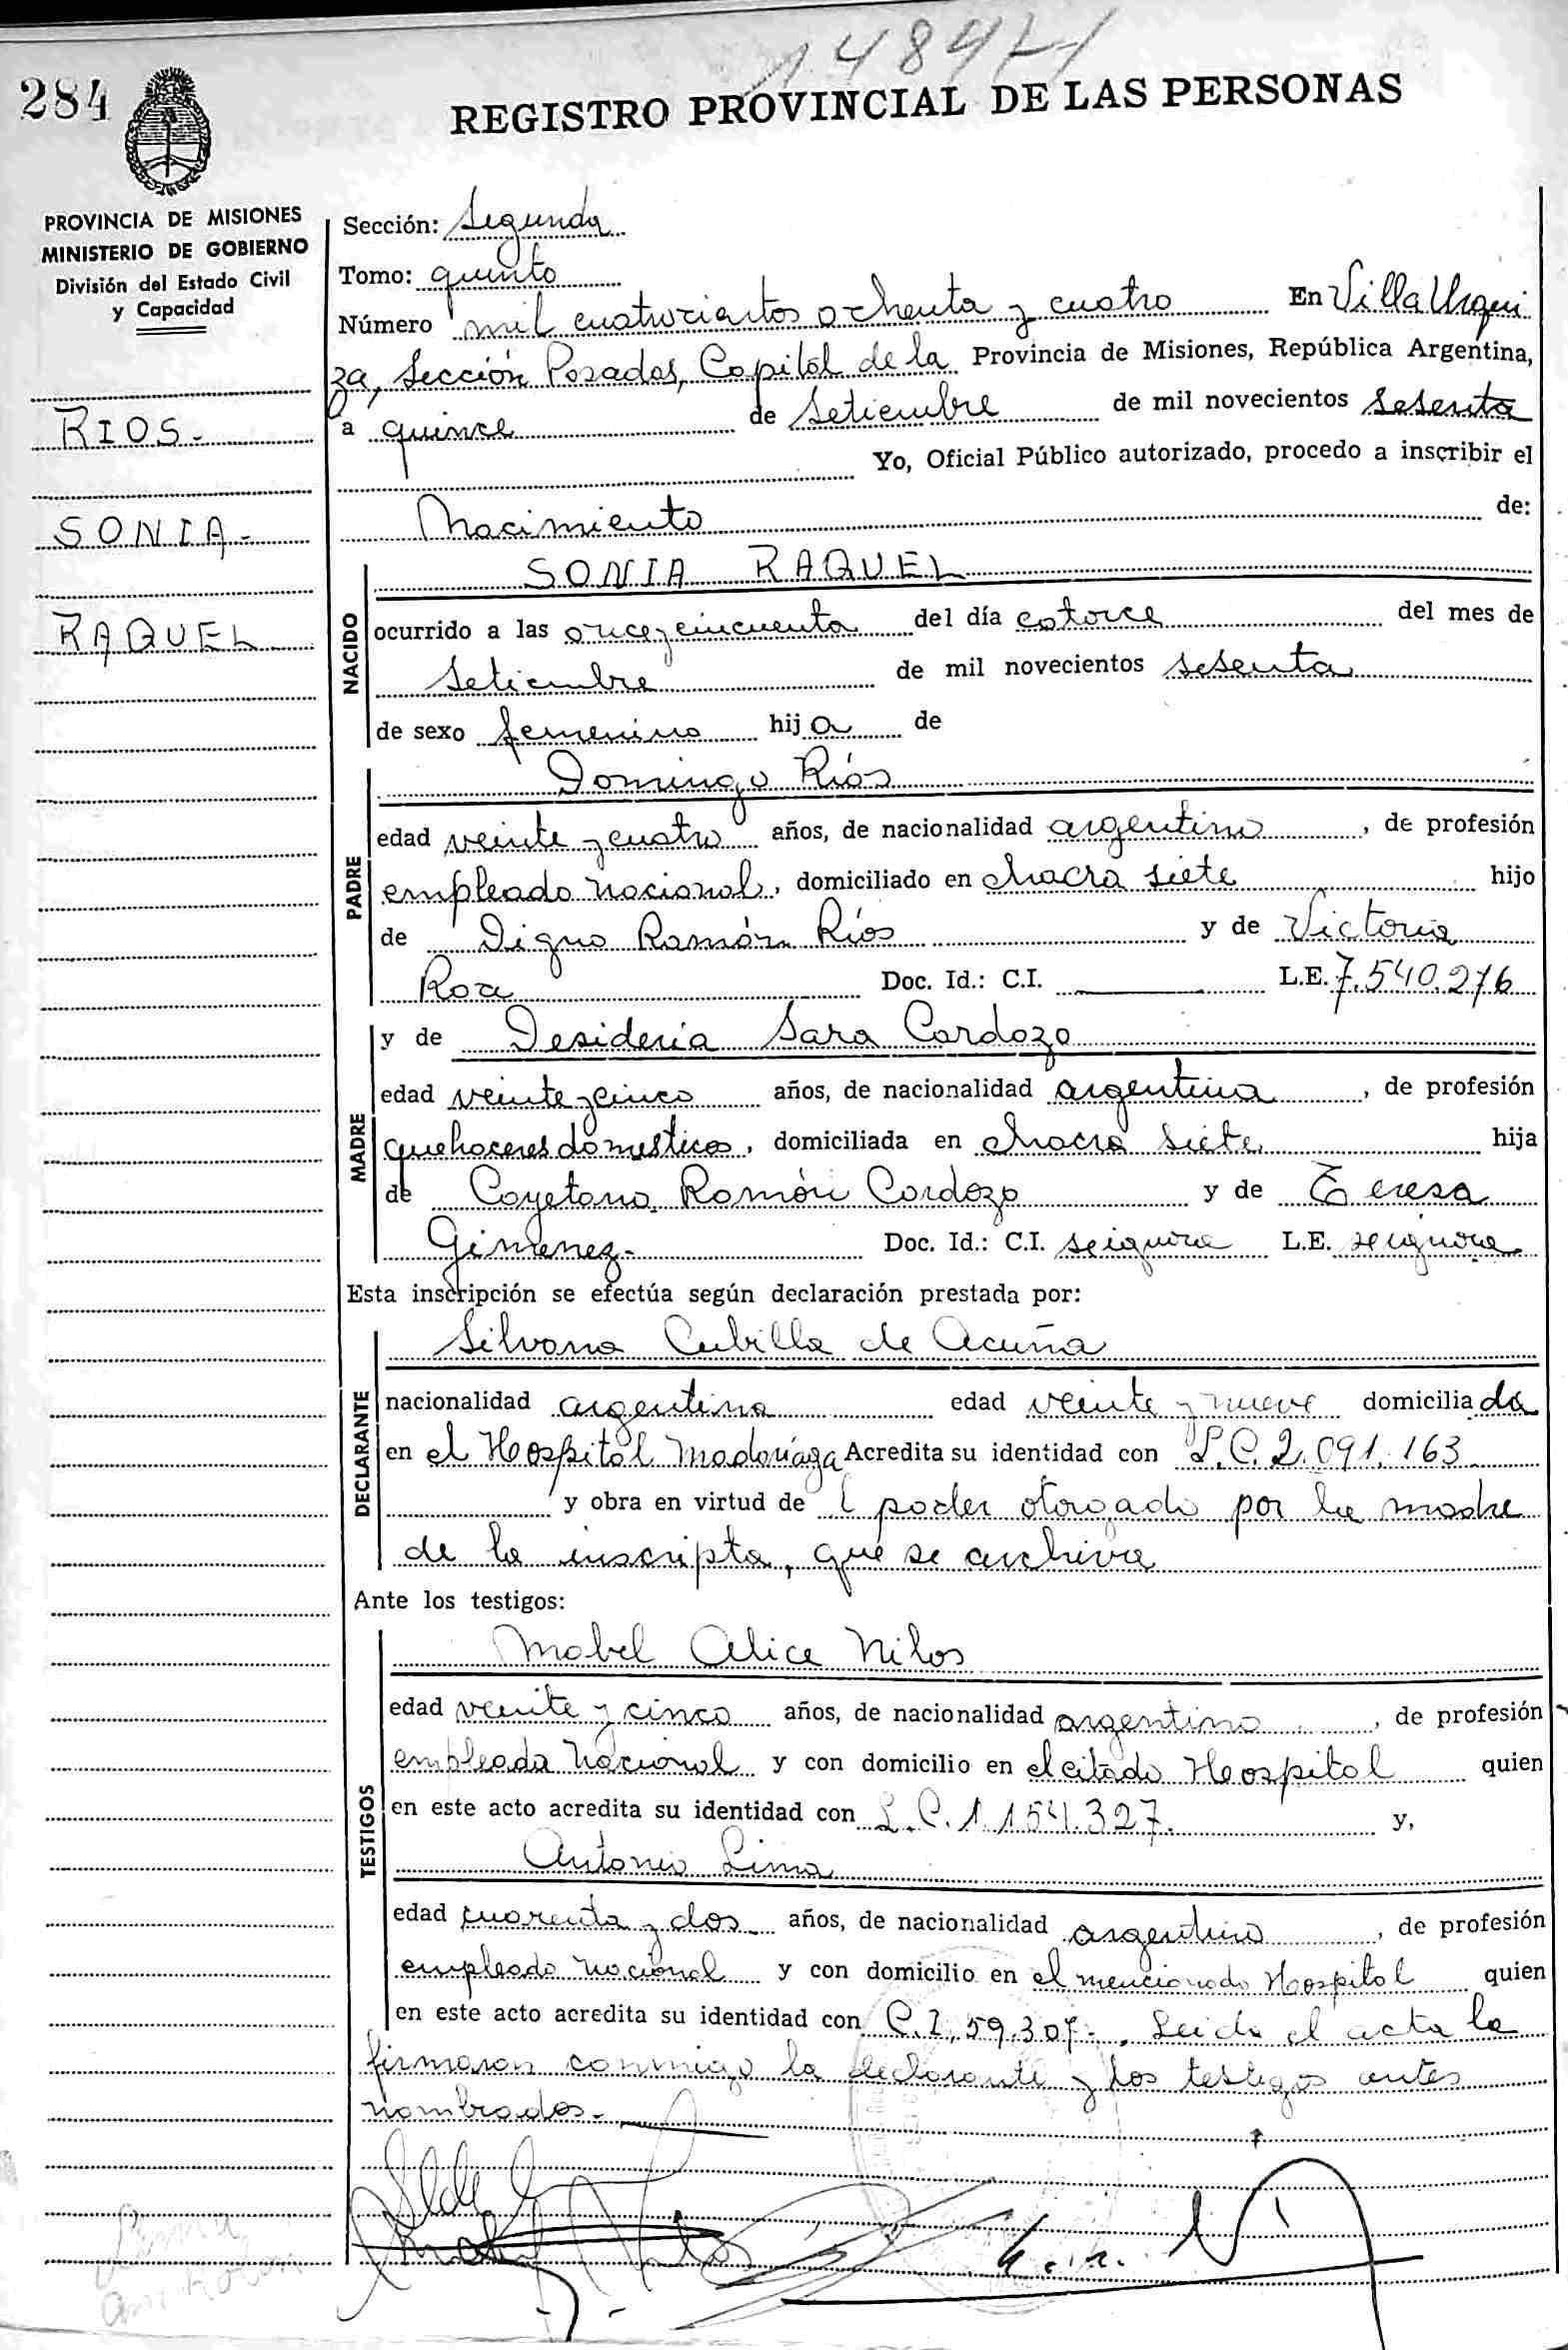 1484 L1
284
REGISTRO PROVINCIAL DE LAS PERSONAS
PROVINCIA DE MISIONES
MINISTERIO DE GOBIERNO
División del Estado Civil
y Capacidad
RIOS.-
SONIA-
RAQUEL
Sección: Segunda
Tomo: quinto
Número mil cuatrocientos ochenta y cuatro En Villa Urqui
za, Sección Posadas, Capital de la Provincia de Misiones, República Argentina,
a quince de Setiembre de mil novecientos sesenta
Yo, Oficial Público autorizado, procedo a inscribir el
Nacimiento de:
NACIDO
SONIA RAQUEL
ocurrido a las once y cincuenta del día catorce del mes de
Setiembre de mil novecientos sesenta
de sexo femenino hija de
PADRE
Domingo Ríos
edad veinte y cuatro años, de nacionalidad argentino, de profesión
empleado nacional, domiciliado en chacra siete hijo
de Digno Ramón Ríos y de Victoria
Roa Doc. Id.: C.I. L.E. 7.540.276
MADRE
y de Desideria Sara Cardozo
edad veinte y cinco años, de nacionalidad argentina, de profesión
quehaceres domesticos, domiciliada en chacra siete hija
de Cayetano Ramón Cardozo y de Teresa
Gimenez.- Doc. Id.: C.I. se ignora L.E. se ignora
Esta inscripción se efectúa según declaración prestada por:
DECLARANTE
Silvana Cubilla de Acuña
nacionalidad argentina edad veinte y nueve domiciliada
en el Hospital Madariaga Acredita su identidad con L.C. 2.091.163
y obra en virtud del poder otorgado por la madre
de la inscripta, que se archiva
Ante los testigos:
TESTIGOS
Mabel Alice Nilos
edad veinte y cinco años, de nacionalidad argentina, de profesión
empleada nacional y con domicilio en el citado Hospital quien
en este acto acredita su identidad con L.C. 1.154.327. y,
Antonio Lima
edad cuarenta y dos años, de nacionalidad argentino, de profesión
empleado nacional y con domicilio en el mencionado Hospital quien
en este acto acredita su identidad con C.I. 59.307.- Leida el acta la
firmaron conmigo la declarante y los testigos antes
nombrados.-
Lima